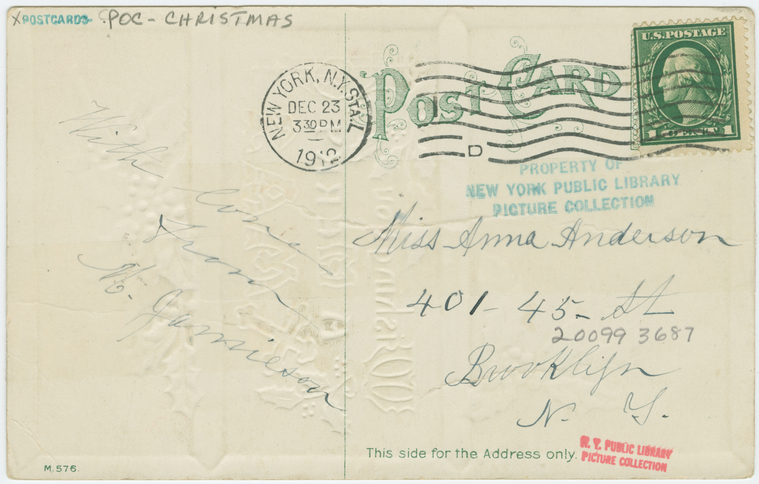 XPOSTCARDS POC - CHRISTMAS
NEW YORK, N.Y. STA. L
DEC 23
3 30 PM
1912
POST CARD
U.S. POSTAGE
1 CENT 1
D
PROPERTY OF
NEW YORK PUBLIC LIBRARY
PICTURE COLLECTION
With love
from
Jamieson
Miss Anna Anderson
401 - 45 - St
20099 3687
Brooklyn
N. Y.
This side for the Address only.
N. Y. PUBLIC LIBRARY
PICTURE COLLECTION
M. 576.